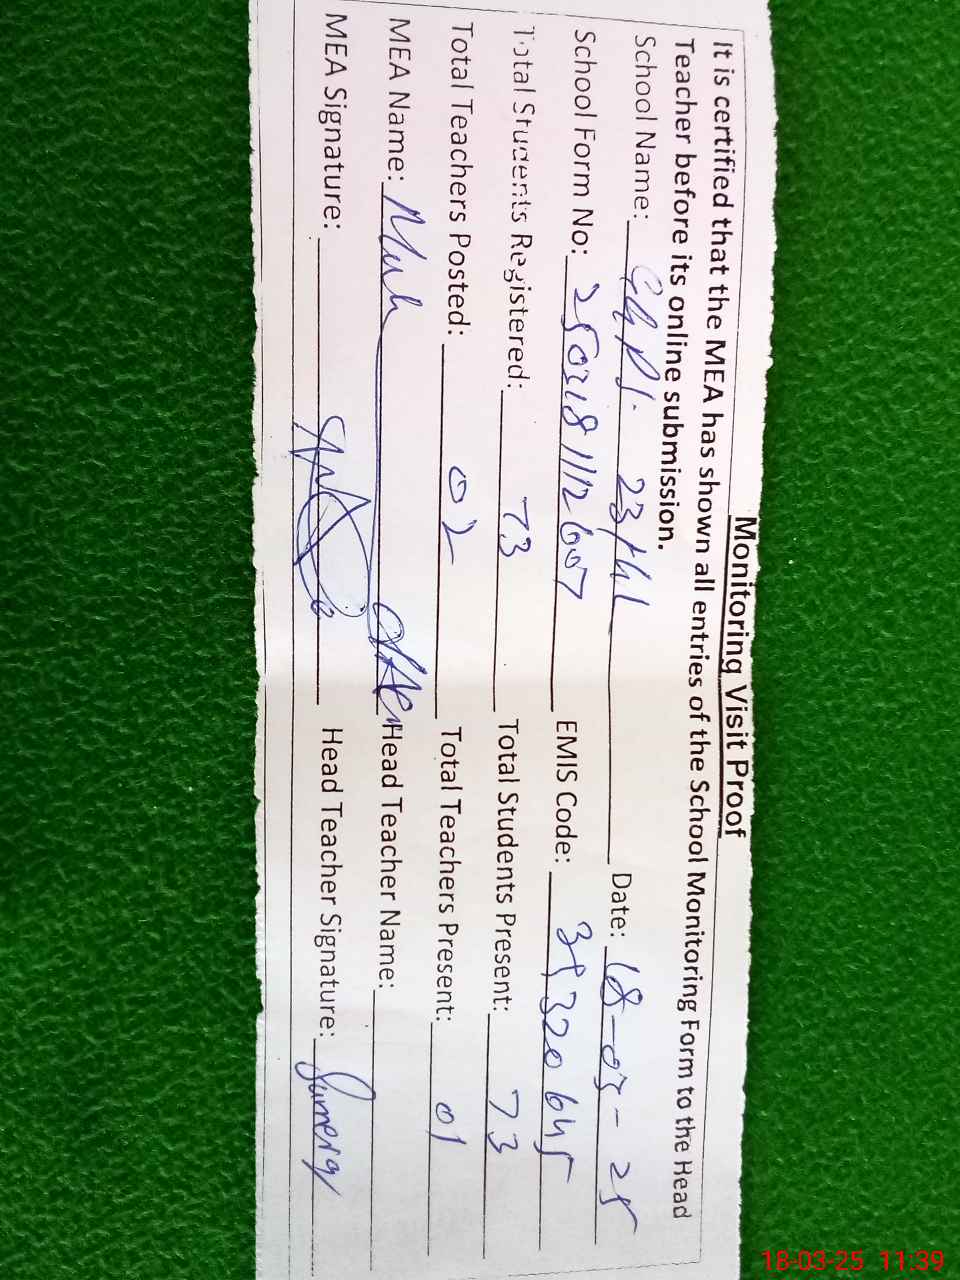 Monitoring Visit Proof
It is certified that the MEA has shown all entries of the School Monitoring Form to the Head
Teacher before its online submission.
School Name: GGPS. 23/4L Date: 18-03-25
School Form No: 2502181112607 EMIS Code: 39320645
Total Students Registered: 73 Total Students Present: 73
Total Teachers Posted: 02 Total Teachers Present: 01
MEA Name: Head Teacher Name:
MEA Signature: Head Teacher Signature:
18-03-25 11:39